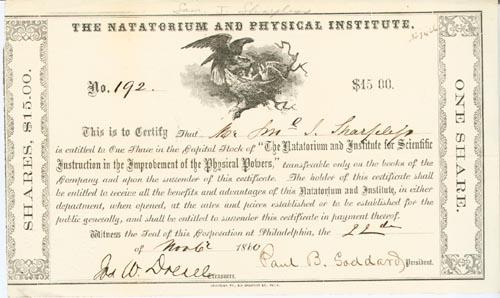 THE NATATORIUM AND PHYSICAL INSTITUTE.
No. 192.
$15 00.
SHARES, $15.00.
ONE SHARE.
This is to Certify That Mr Jno S. Sharpless
is entitled to One Share in the Capital Stock of "The Natatorium and Institute for Scientific
Instruction in the Improvement of the Physical Powers," transferable only on the books of the
Company and upon the surrender of this certificate. The holder of this certificate shall
be entitled to receive all the benefits and advantages of this Natatorium and Institute, in either
department, when opened, at the rates and prices established or to be established for the
public generally, and shall be entitled to surrender this certificate in payment thereof.
Witness the Seal of this Corporation at Philadelphia, the 22d
of Novbr 1860
Treasurer.
Paul B. Goddard President.